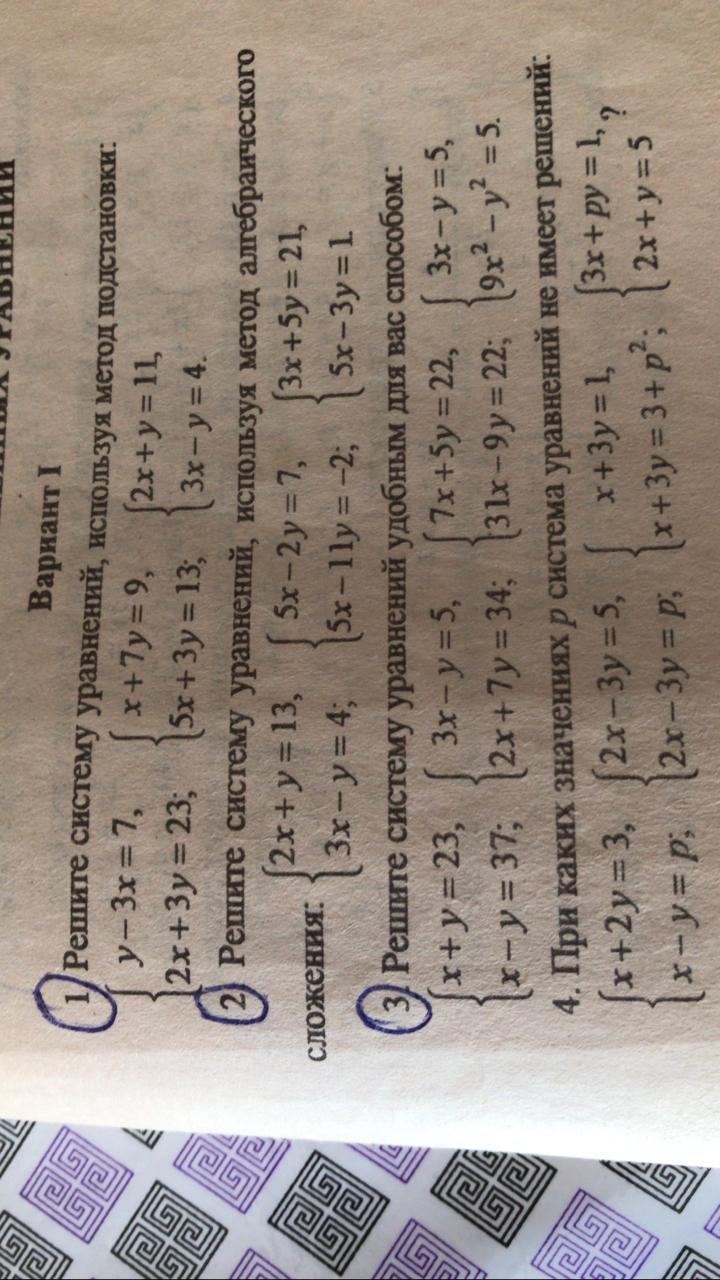 Вариант I
1. Решите систему уравнений, используя метод подстановки:
{ y − 3x = 7, { x + 7y = 9, { 2x + y = 11,
2x + 3y = 23; 5x + 3y = 13; 3x − y = 4.
2. Решите систему уравнений, используя метод алгебраического
сложения: { 2x + y = 13, { 5x − 2y = 7, { 3x + 5y = 21,
3x − y = 4; 5x − 11y = −2; 5x − 3y = 1.
3. Решите систему уравнений удобным для вас способом:
{ x + y = 23, { 3x − y = 5, { 7x + 5y = 22, { 3x − y = 5,
x − y = 37; 2x + 7y = 34; 31x − 9y = 22; 9x² − y² = 5.
4. При каких значениях p система уравнений не имеет решений:
{ x + 2y = 3, { 2x − 3y = 5, { x + 3y = 1, { 3x + py = 1,
x − y = p; 2x − 3y = p; x + 3y = 3 + p²; 2x + y = 5 ?